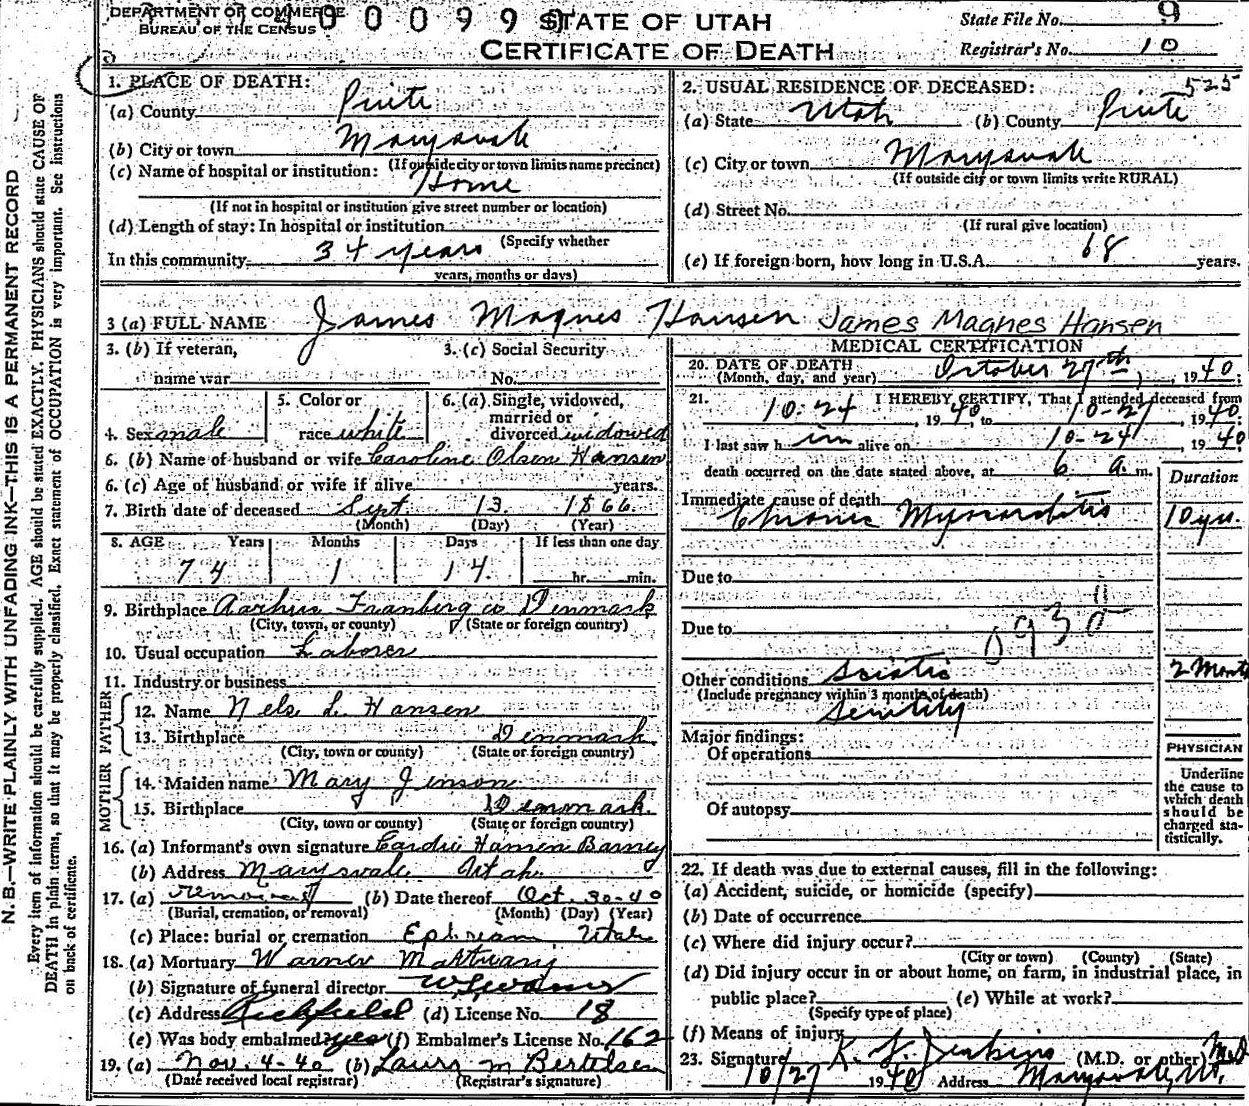 DEPARTMENT OF COMMERCE
BUREAU OF THE CENSUS
STATE OF UTAH
CERTIFICATE OF DEATH
State File No. 9
Registrar's No. 10
N. B.—WRITE PLAINLY WITH UNFADING INK—THIS IS A PERMANENT RECORD
Every item of information should be carefully supplied. AGE should be stated EXACTLY. PHYSICIANS should state CAUSE OF
DEATH in plain terms, so that it may be properly classified. Exact statement of OCCUPATION is very important. See instructions
on back of certificate.
1. PLACE OF DEATH:
(a) County Piute
(b) City or town Marysvale
(If outside city or town limits name precinct)
(c) Name of hospital or institution:
Home
(If not in hospital or institution give street number or location)
(d) Length of stay: In hospital or institution
(Specify whether
In this community 34 years
years, months or days)
2. USUAL RESIDENCE OF DECEASED: 525
(a) State Utah (b) County Piute
(c) City or town Marysvale
(If outside city or town limits write RURAL)
(d) Street No.
(If rural give location)
(e) If foreign born, how long in U.S.A. 68 years.
3 (a) FULL NAME James Magnes Hansen James Magnes Hansen
3. (b) If veteran,
name war
3. (c) Social Security
No.
4. Sex male
5. Color or
race white
6. (a) Single, widowed,
married or
divorced widowed
6. (b) Name of husband or wife Caroline Olsen Hansen
6. (c) Age of husband or wife if alive years.
7. Birth date of deceased Sept. 13. 1866.
(Month) (Day) (Year)
8. AGE Years Months Days If less than one day
74 1 14. hr. min.
9. Birthplace Aarhus Co Denmark
(City, town, or county) (State or foreign country)
10. Usual occupation Laborer
11. Industry or business
FATHER
12. Name Nels L. Hansen
13. Birthplace Denmark.
(City, town or county) (State or foreign country)
MOTHER
14. Maiden name Mary Jenson
15. Birthplace Denmark.
(City, town or county) (State or foreign country)
16. (a) Informant's own signature Hansen Barney
(b) Address Marysvale Utah
17. (a) removal (b) Date thereof Oct. 30-40
(Burial, cremation, or removal) (Month) (Day) (Year)
(c) Place: burial or cremation Ephraim, Utah
18. (a) Mortuary Warner Mortuary
(b) Signature of funeral director
(c) Address Richfield (d) License No. 18
(e) Was body embalmed yes (f) Embalmer's License No. 162
19. (a) Nov. 4-40 (b) Laura M Bertelsen
(Date received local registrar) (Registrar's signature)
MEDICAL CERTIFICATION
20. DATE OF DEATH
(Month, day, and year) October 27th, 1940;
21. I HEREBY CERTIFY, That I attended deceased from
10-24, 1940, to 10-27 1940.
I last saw him alive on 10-24 1940
death occurred on the date stated above, at 6 a. m.
Duration
Immediate cause of death
Chronic Myocarditis 10 yrs.
Due to
Due to
Other conditions Sciatic 2 Month
(Include pregnancy within 3 months of death)
Senility
Major findings:
Of operations
Of autopsy
PHYSICIAN
Underline
the cause to
which death
should be
charged sta-
tistically.
22. If death was due to external causes, fill in the following:
(a) Accident, suicide, or homicide (specify)
(b) Date of occurrence
(c) Where did injury occur?
(City or town) (County) (State)
(d) Did injury occur in or about home, on farm, in industrial place, in
public place? (e) While at work?
(Specify type of place)
(f) Means of injury
23. Signature Jenkins (M.D. or other) M.D.
10/27 1940 Address Marysvale, Ut.